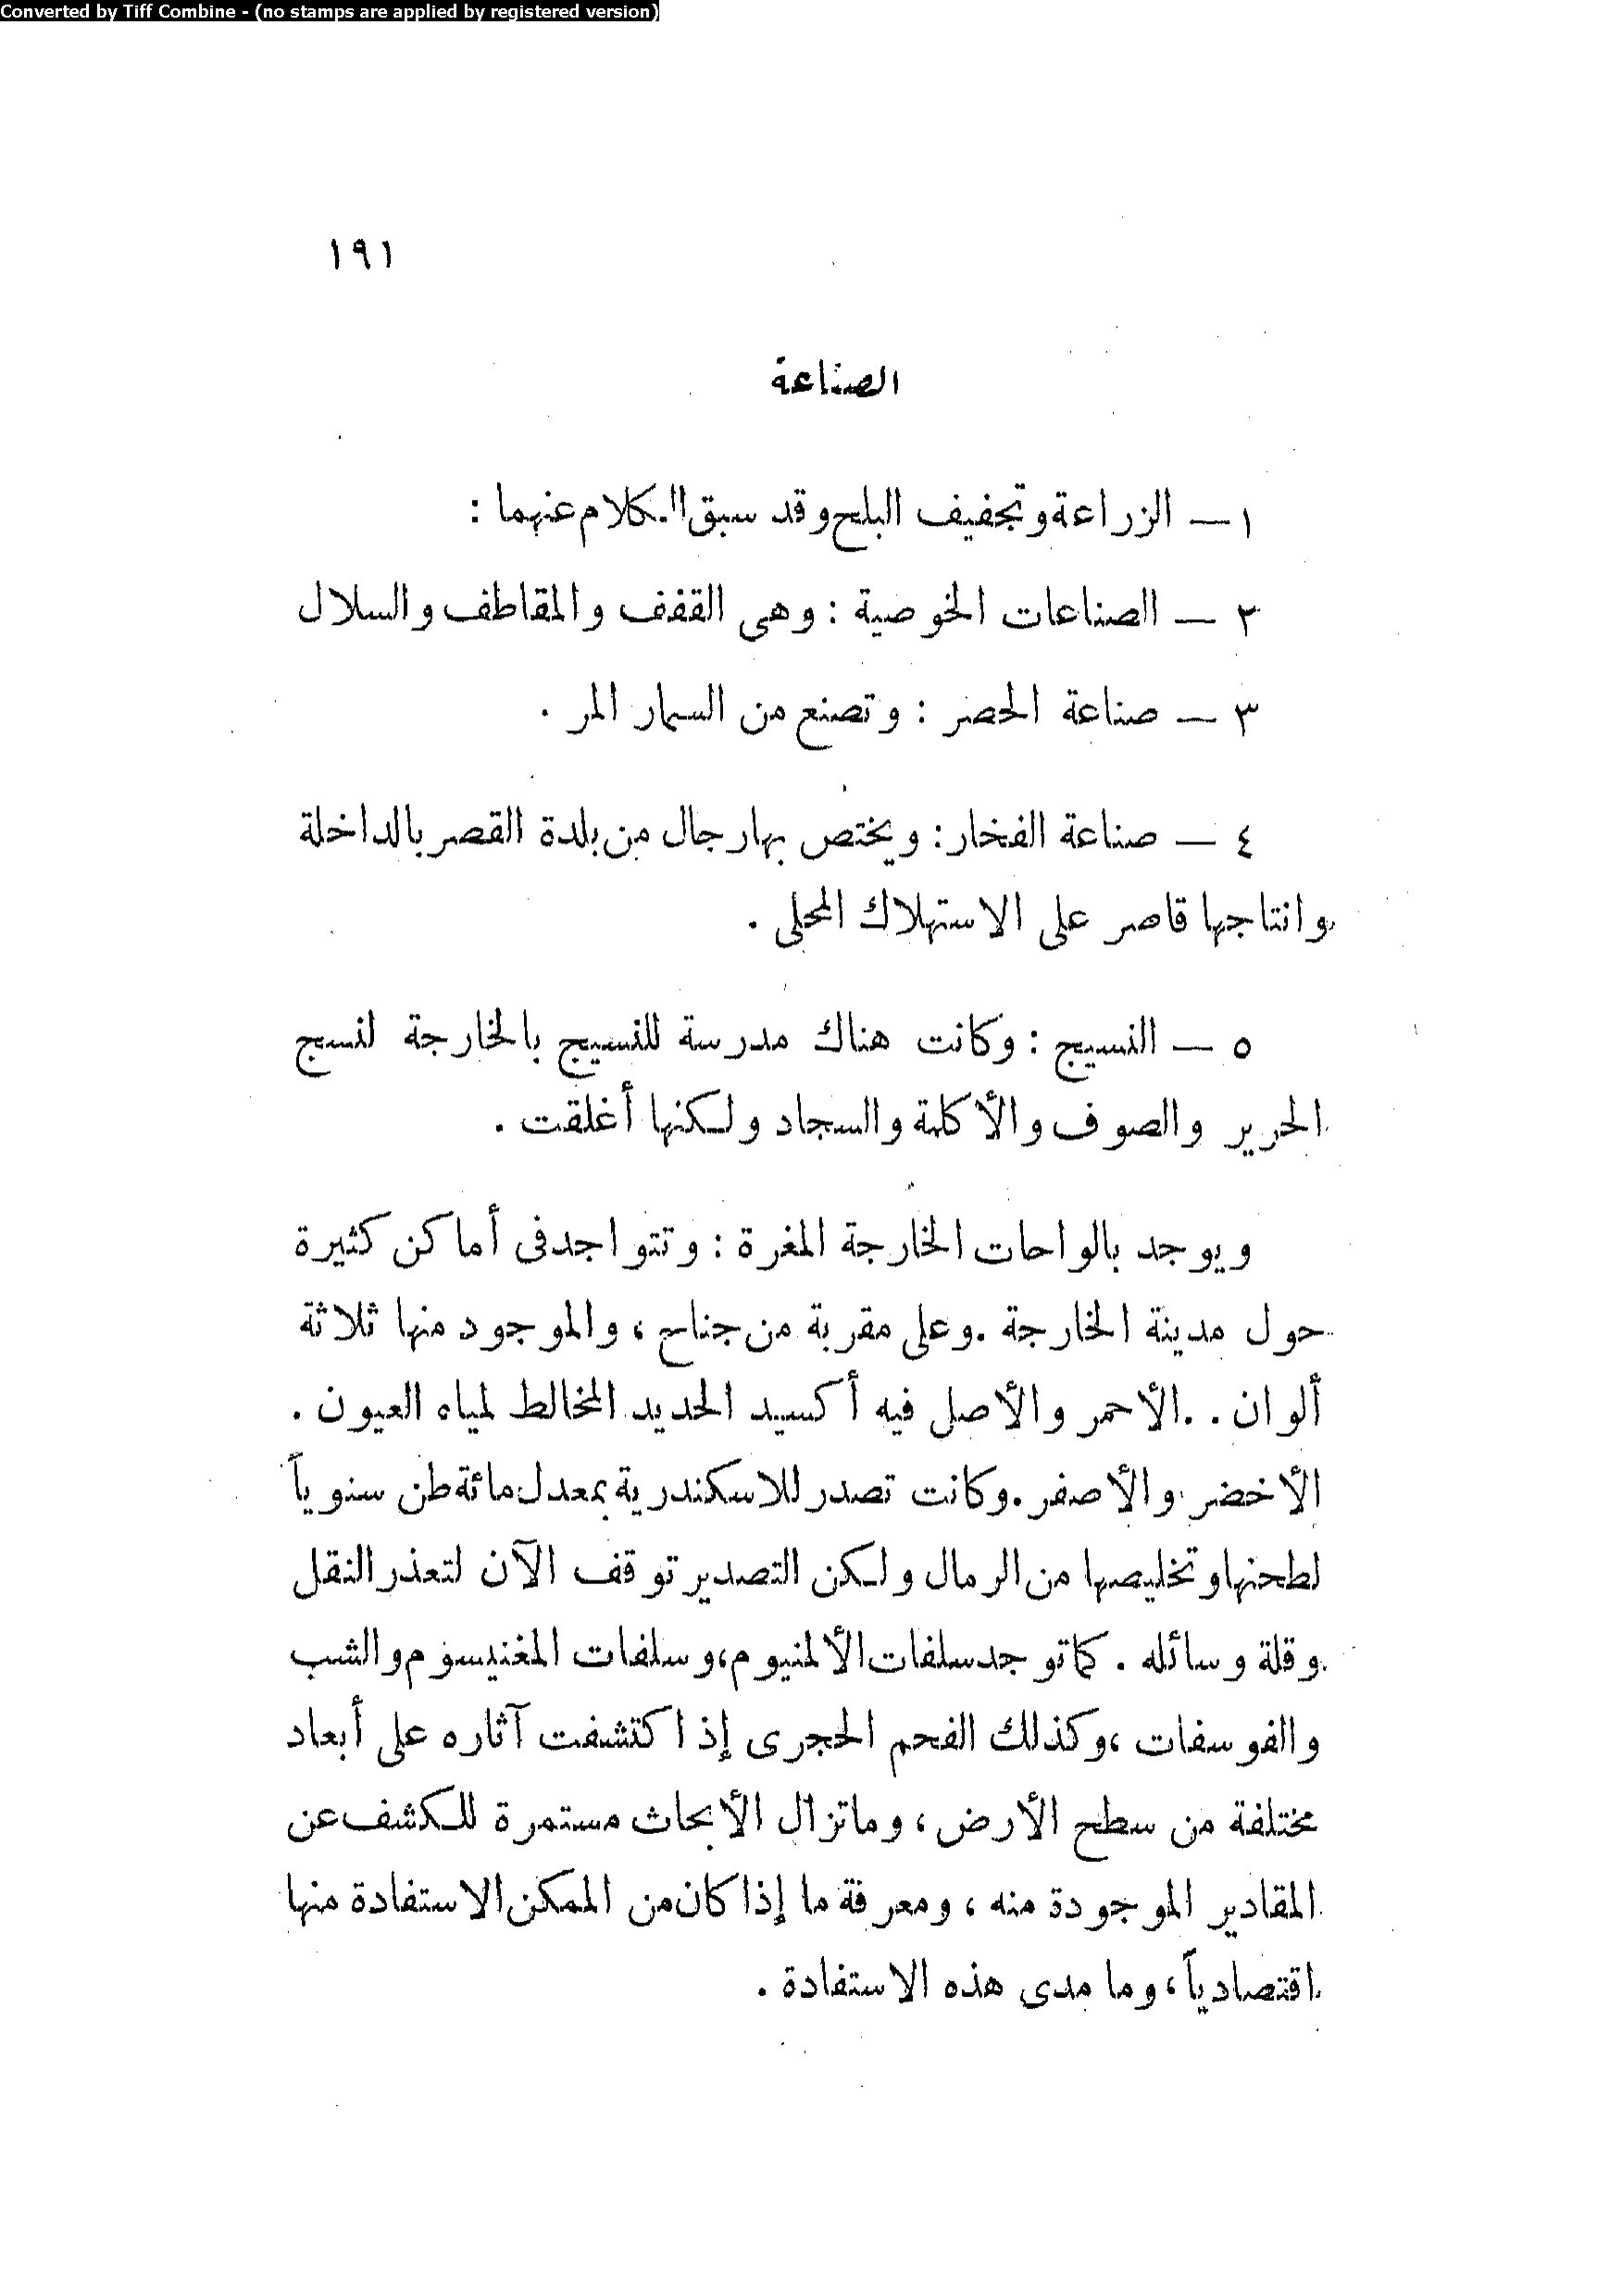 Converted by Tiff Combine - (no stamps are applied by registered version)
١٩١
الصناعة
١ — الزراعة وتجفيف البلح وقد سبق الكلام عنهما :
٢ — الصناعات الخوصية : وهى القفف والمقاطف والسلال
٣ — صناعة الحصر : وتصنع من السمار المر .
٤ — صناعة الفخار : ويختص بها رجال من بلدة القصر بالداخلة
وانتاجها قاصر على الاستهلاك المحلى .
٥ — النسيج : وكانت هناك مدرسة للنسيج بالخارجة لنسج
الحرير والصوف والأكلمة والسجاد ولكنها أغلقت .
ويوجد بالواحات الخارجة المغرة : وتتواجد فى أماكن كثيرة
حول مدينة الخارجة . وعلى مقربة من جناح ، والموجود منها ثلاثة
ألوان . . الأحمر والأصل فيه أكسيد الحديد المخالط لمياه العيون .
الأخضر والأصفر . وكانت تصدر للاسكندرية بمعدل مائة طن سنوياً
لطحنها وتخليصها من الرمال ولكن التصدير توقف الآن لتعذر النقل
وقلة وسائله . كما توجد سلفات الألمنيوم ، وسلفات المغنيسوم والشب
والفوسفات ، وكذلك الفحم الحجرى إذ اكتشفت آثاره على أبعاد
مختلفة من سطح الأرض ، وما تزال الأبحاث مستمرة للكشف عن
المقادير الموجودة منه ، ومعرفة ما إذا كان من الممكن الاستفادة منها
اقتصادياً ، وما مدى هذه الاستفادة .